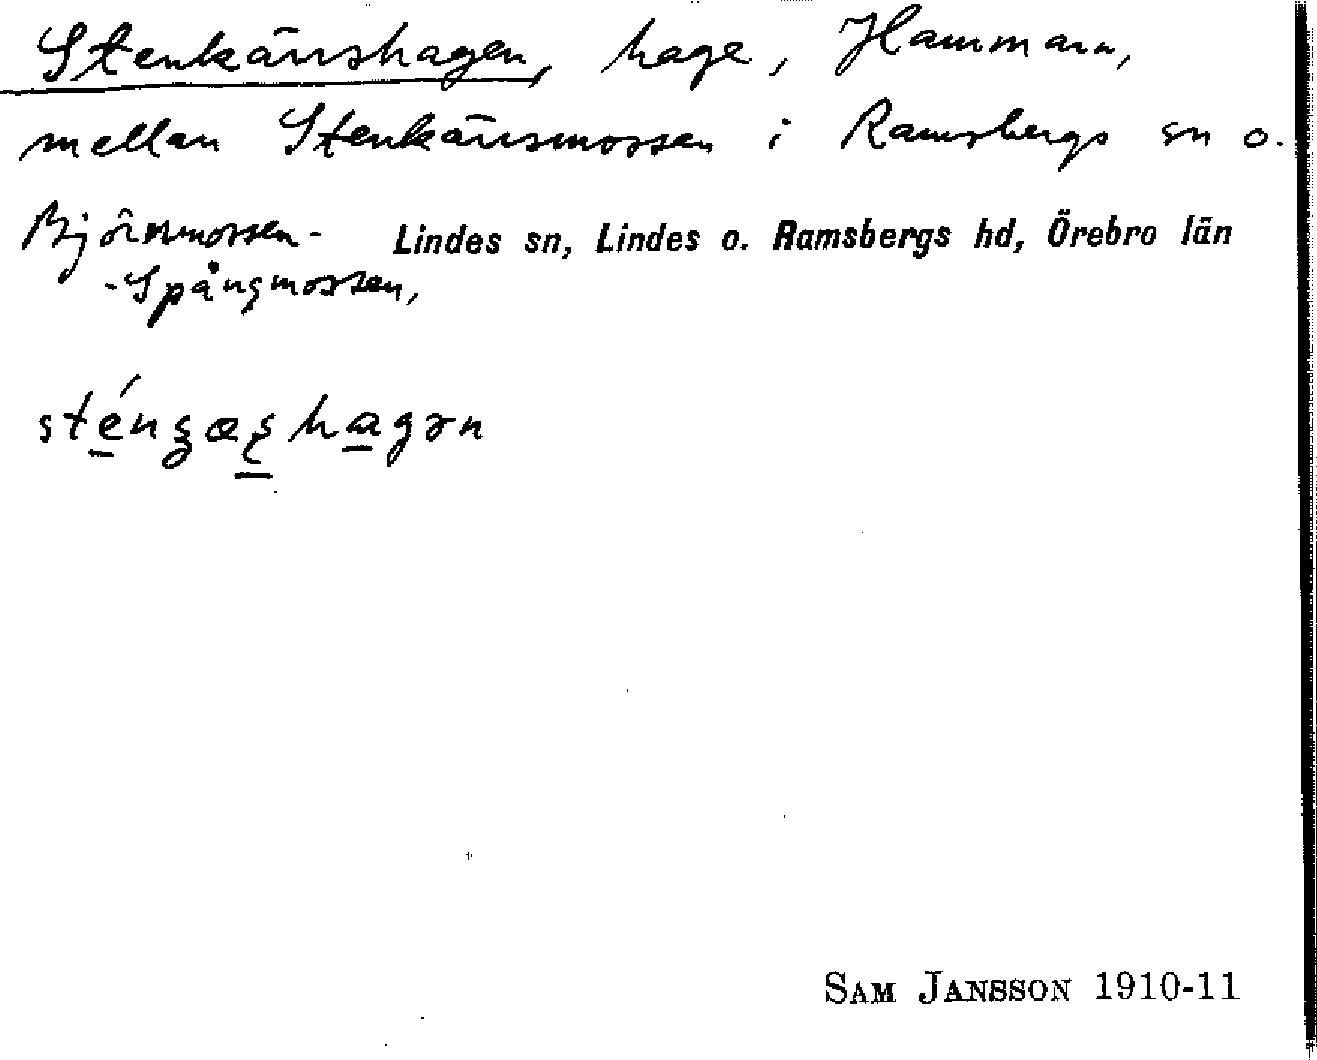 Stenkärrshagen, hage, Hammarn,
mellan Stenkärrsmossen i Ramsbergs sn o.
Björnmossen- Lindes sn, Lindes o. Ramsbergs hd, Örebro län
-Spångmossen,
SAM JANSSON 1910-11